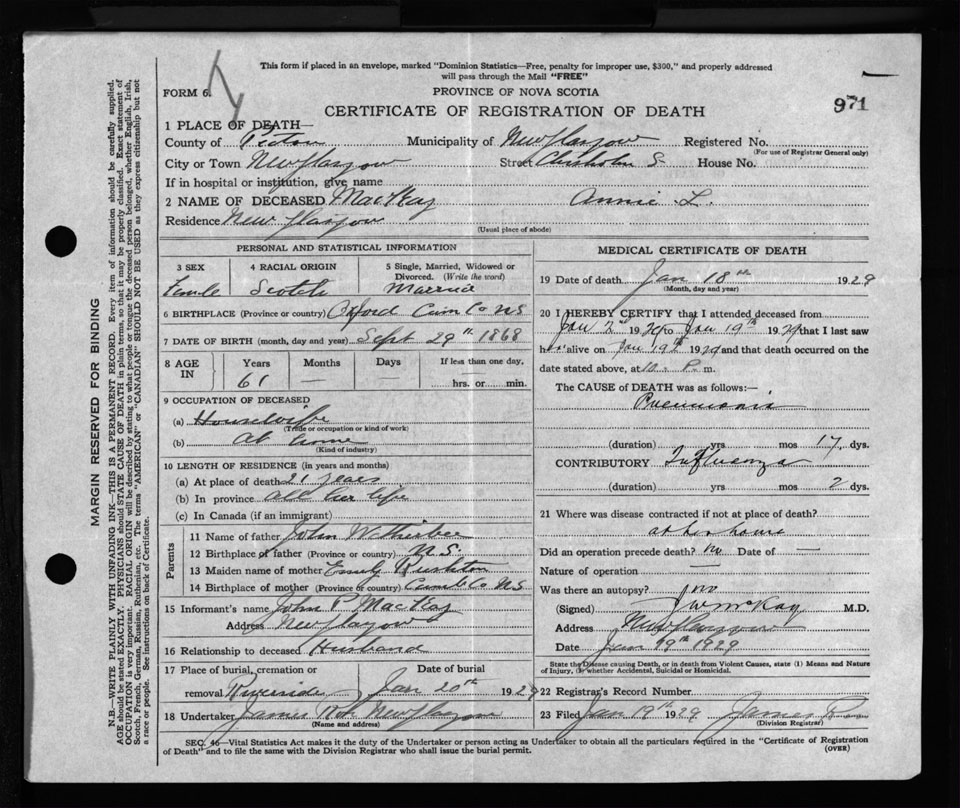 This form if placed in an envelope, marked "Dominion Statistics—Free, penalty for improper use, $300," and properly addressed
will pass through the Mail "FREE"
FORM 6.
PROVINCE OF NOVA SCOTIA
971
CERTIFICATE OF REGISTRATION OF DEATH
1 PLACE OF DEATH—
County of Pictou Municipality of New Glasgow Registered No.
(For use of Registrar General only)
City or Town New Glasgow Street Chisholm S. House No.
If in hospital or institution, give name
2 NAME OF DECEASED MacKay Annie L.
Residence New Glasgow
(Usual place of abode)
PERSONAL AND STATISTICAL INFORMATION
3 SEX 4 RACIAL ORIGIN 5 Single, Married, Widowed or
Divorced. (Write the word)
Female Scotch Married
6 BIRTHPLACE (Province or country) Oxford Cum Co NS
7 DATE OF BIRTH (month, day and year) Sept 29th 1868
8 AGE IN Years Months Days If less than one day,
61 — hrs. or min.
9 OCCUPATION OF DECEASED
(a) Housewife
(Trade or occupation or kind of work)
(b) At home
(Kind of industry)
10 LENGTH OF RESIDENCE (in years and months)
(a) At place of death 21 years
(b) In province all her life
(c) In Canada (if an immigrant)
Parents
11 Name of father John
12 Birthplace of father (Province or country) N.S.
13 Maiden name of mother Emily Rushton
14 Birthplace of mother (Province or country) Cumb Co NS
15 Informant's name John P. MacKay
Address New Glasgow
16 Relationship to deceased Husband
17 Place of burial, cremation or Date of burial
removal Riverside Jan 20th 1929
18 Undertaker James New Glasgow
(Name and address)
MEDICAL CERTIFICATE OF DEATH
19 Date of death Jan 18th 1929
(Month, day and year)
20 I HEREBY CERTIFY that I attended deceased from
Jan 2nd 1929 to Jan 19th 1929 that I last saw
her alive on Jan 19th 1929 and that death occurred on the
date stated above, at P. m.
The CAUSE of DEATH was as follows:—
Pneumonia
(duration) yrs mos 17 dys.
CONTRIBUTORY Influenza
(duration) yrs mos 2 dys.
21 Where was disease contracted if not at place of death?
at her home
Did an operation precede death? no Date of —
Nature of operation —
Was there an autopsy? no
(Signed) McKay M.D.
Address New Glasgow
Date Jan 19th 1929
State the Disease causing Death, or in death from Violent Causes, state (1) Means and Nature
of Injury, (2) whether Accidental, Suicidal or Homicidal.
22 Registrar's Record Number
23 Filed Jan 19th 1929 James
(Division Registrar)
SEC. 46—Vital Statistics Act makes it the duty of the Undertaker or person acting as Undertaker to obtain all the particulars required in the "Certificate of Registration
of Death" and to file the same with the Division Registrar who shall issue the burial permit.
(OVER)
MARGIN RESERVED FOR BINDING
N.B.—WRITE PLAINLY WITH UNFADING INK—THIS IS A PERMANENT RECORD. Every item of information should be carefully supplied.
AGE should be stated EXACTLY. PHYSICIANS should STATE CAUSE OF DEATH in plain terms, so that it may be properly classified. Exact statement of
OCCUPATION is very important. RACIAL ORIGIN will be described by stating to what people or tongue the deceased person belonged, whether English, Irish,
Scotch, French, German, Russian, Ruthenian, etc. The terms "AMERICAN" or "CANADIAN" SHOULD NOT BE USED as they express citizenship but not
a race or people. See instructions on back of Certificate.